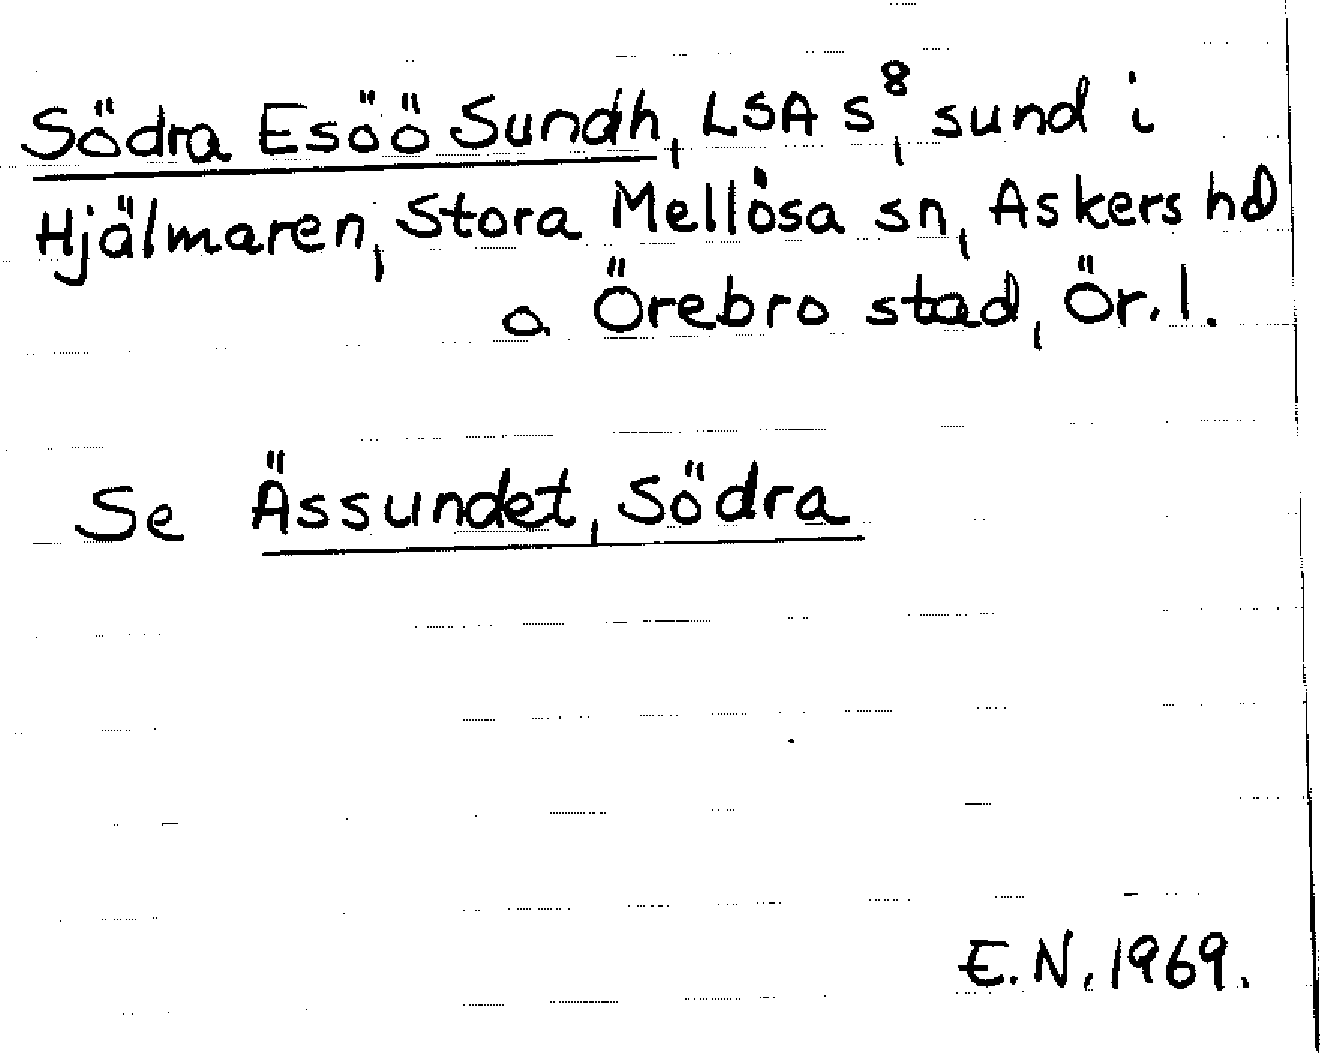 Södra Esöö Sundh, LSA S⁸, sund i
Hjälmaren, Stora Mellösa sn, Askers hd
o Örebro stad, Ör. l.
Se Ässundet, Södra
E.N. 1969.